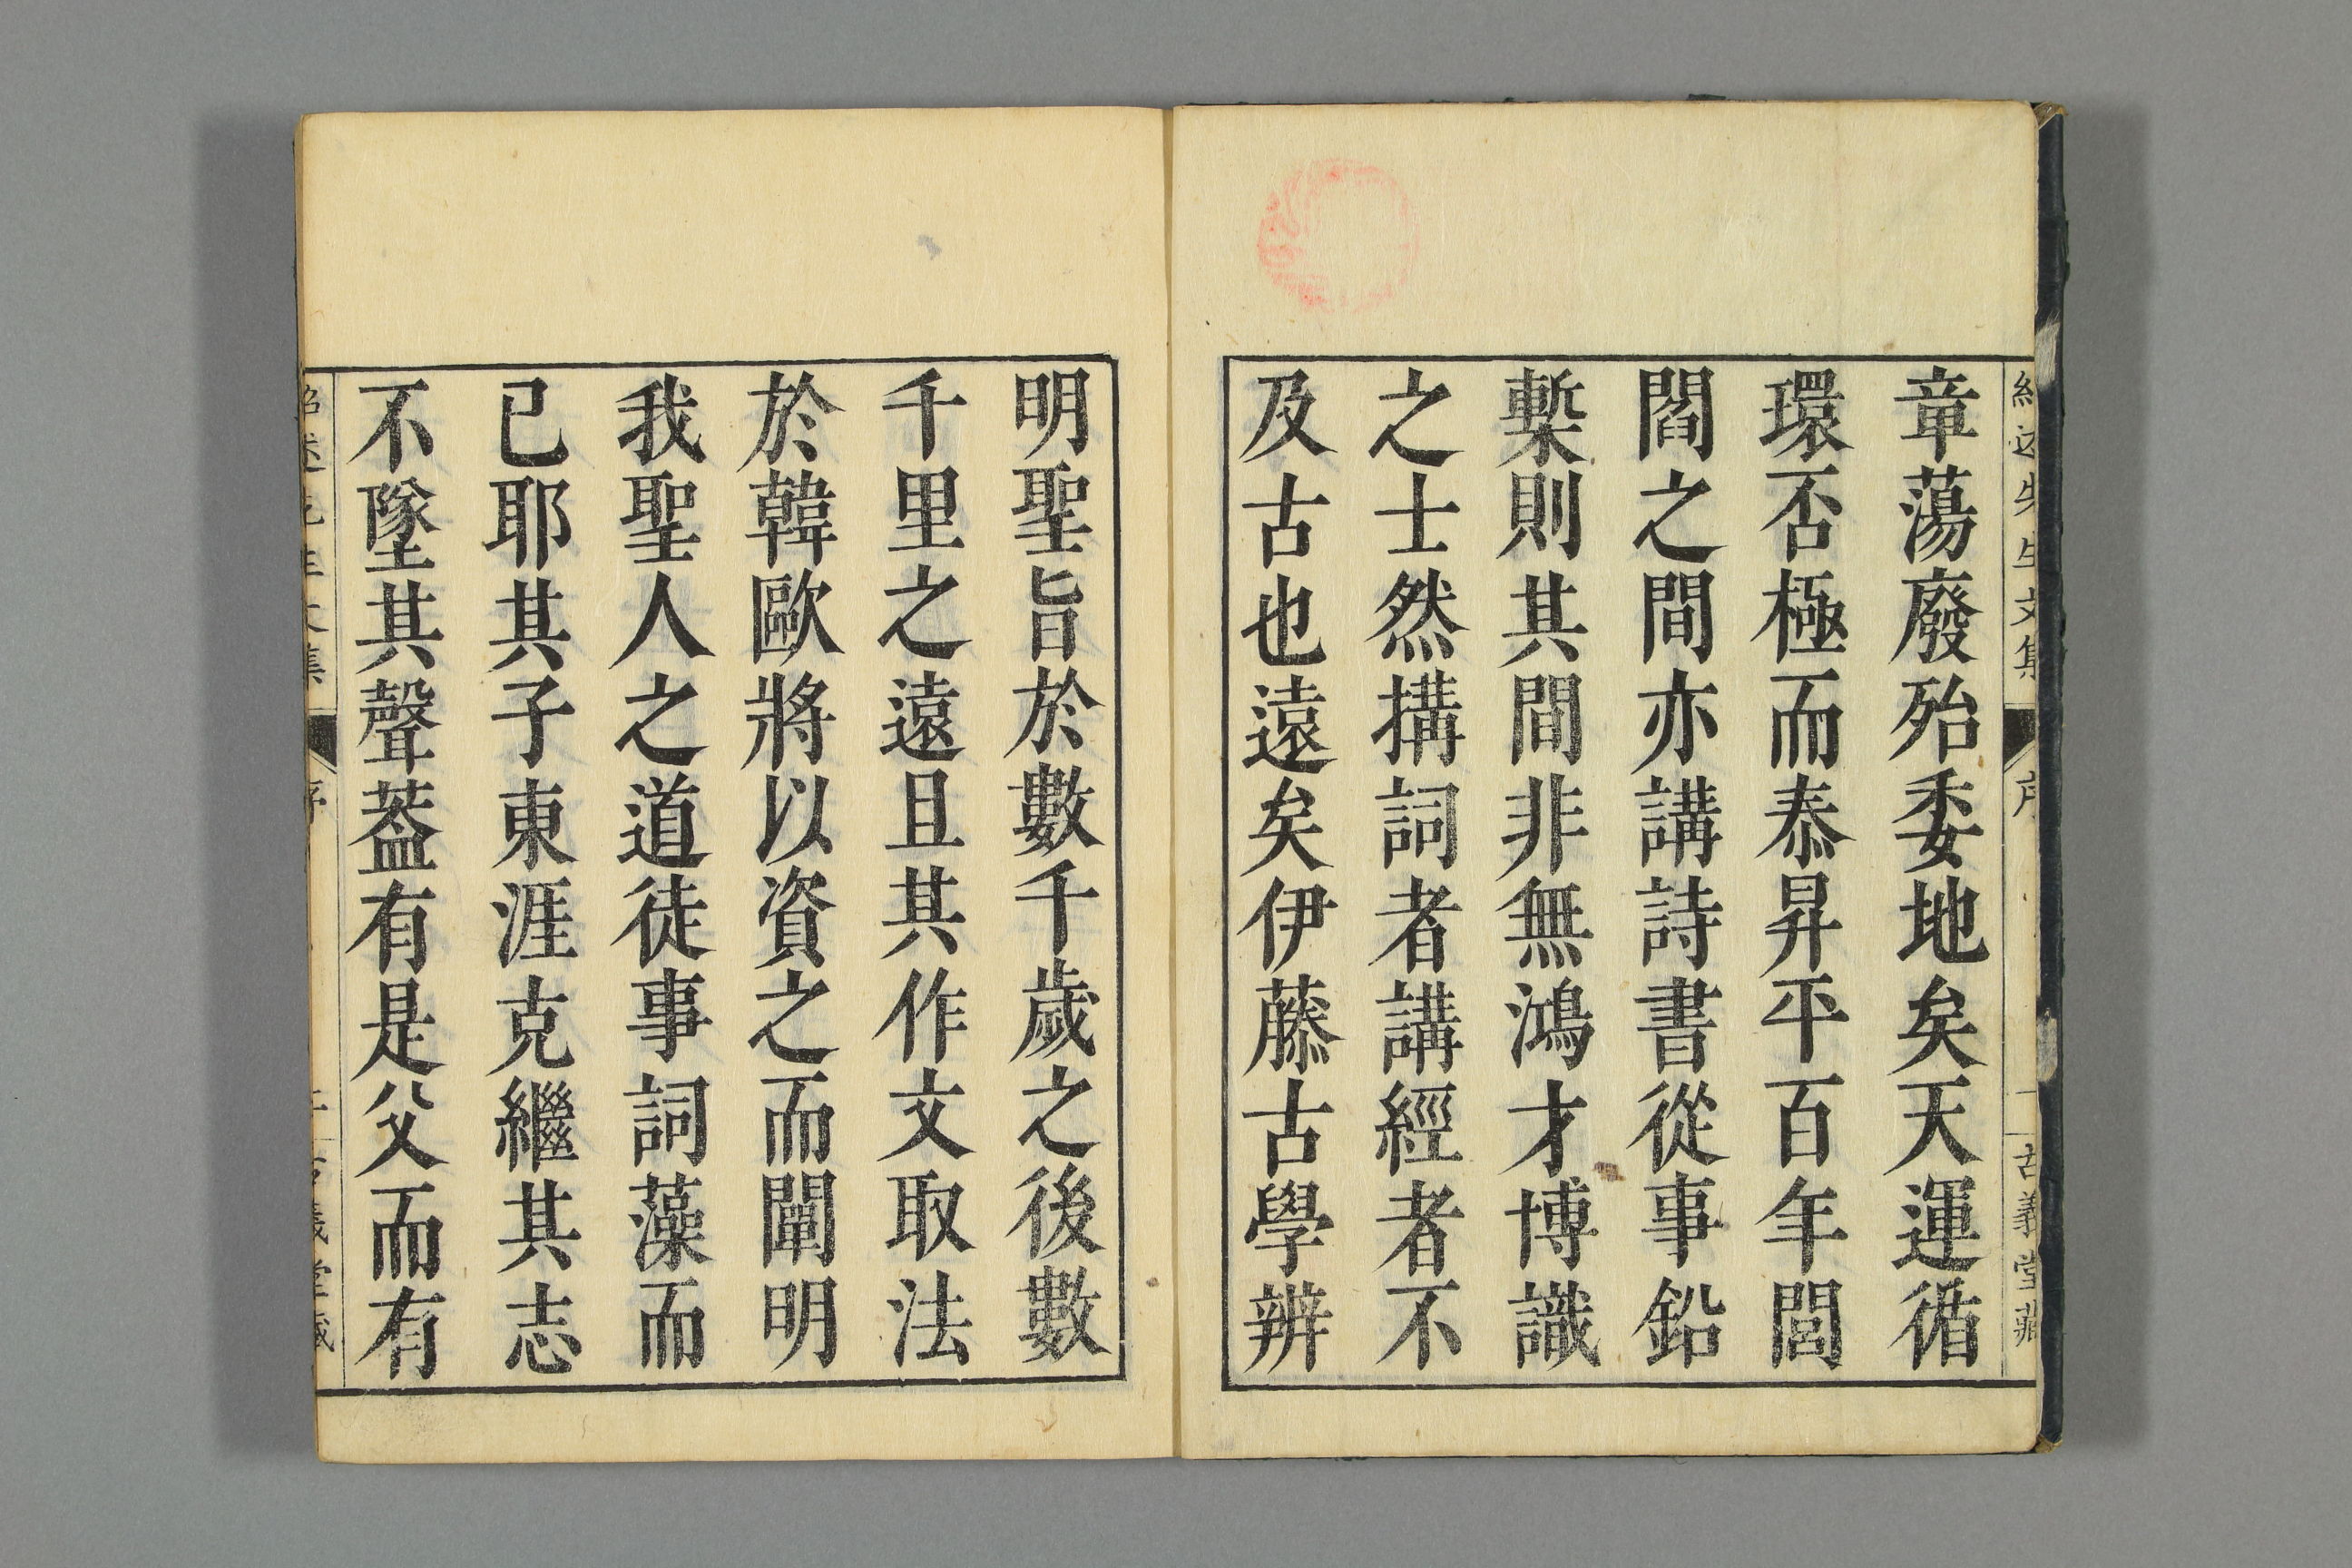 紹述先生文集 序 一 古義堂藏
章蕩廢殆委地矣天運循
環否極而泰昇平百年閭
閻之間亦講詩書從事鉛
槧則其間非無鴻才博識
之士然搆詞者講經者不
及古也遠矣伊藤古學辨
明聖旨於數千歲之後數
千里之遠且其作文取法
於韓歐將以資之而闡明
我聖人之道徒事詞藻而
已耶其子東涯克繼其志
不墜其聲葢有是父而有
紹述先生文集 序 古義堂藏